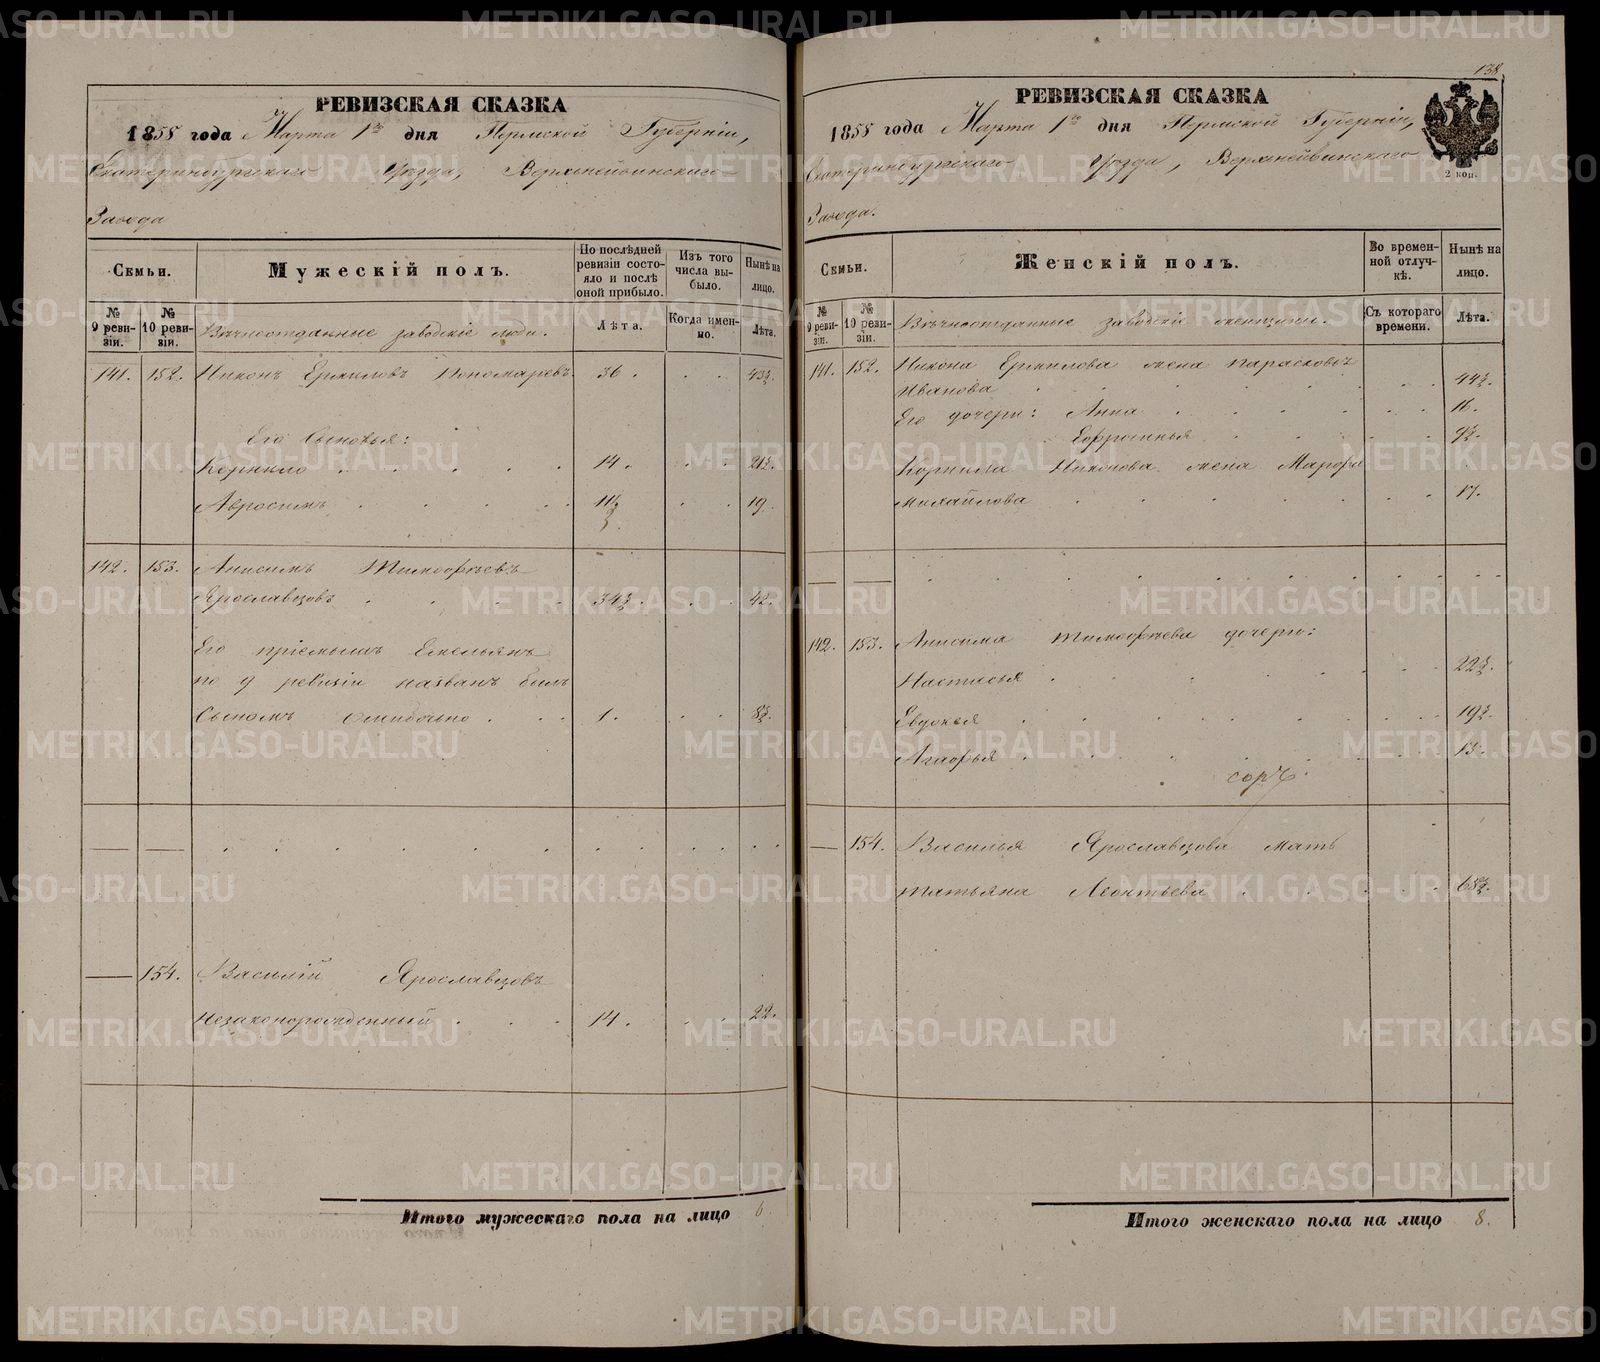 РЕВИЗСКАЯ СКАЗКА
1858 года Марта 1го дня Пермской Губерніи,
Екатеринбургскаго Уезда, Верхнейвинскаго
Завода
Семьи.
Мужескій полъ.
По послѣдней ревизіи состояло и послѣ оной прибыло.
Изъ того числа выбыло.
Нынѣ на лицо.
№ 9 ревизіи.
№ 10 ревизіи.
Вѣчноотданные заводскіе люди.
Лѣта.
Когда именно.
Лѣта.
141. 152. Никонъ Ермиловъ Пономаревъ 36. 43½.
Его Сыновья:
Корнило 14. 21½.
Авросимъ 11½. 19.
142. 153. Анисимъ Тимофѣевъ
Ярославцовъ 34½. 42.
Его пріемышъ Емельянъ
по 9 ревизіи названъ былъ
Сыномъ ошибочно 1. 8½.
154. Василій Ярославцовъ
незаконорожденный 14. 22.
Итого мужескаго пола на лицо 6.
138
РЕВИЗСКАЯ СКАЗКА
1858 года Марта 1го дня Пермской Губерніи,
Екатеринбургскаго Уезда, Верхнейвинскаго
2 коп.
Завода.
Семьи.
Женскій полъ.
Во временной отлучкѣ.
Нынѣ на лицо.
№ 9 ревизіи.
№ 10 ревизіи.
Вѣчноотданные заводскіе женщины.
Съ котораго времени.
Лѣта.
141. 152. Никона Ермилова жена Парасковья
Иванова 44½.
Его дочери: Анна 16.
Ефросинья 9½.
Корнила Никонова жена Марфа
Михайлова 17.
142. 153. Анисима Тимофѣева дочери:
Настасья 22½.
Евдокья 19½.
Агафья 13.
154. Василья Ярославцова мать
Татьяна Леонтьева 65½.
Итого женскаго пола на лицо 8.
METRIKI.GASO-URAL.RU